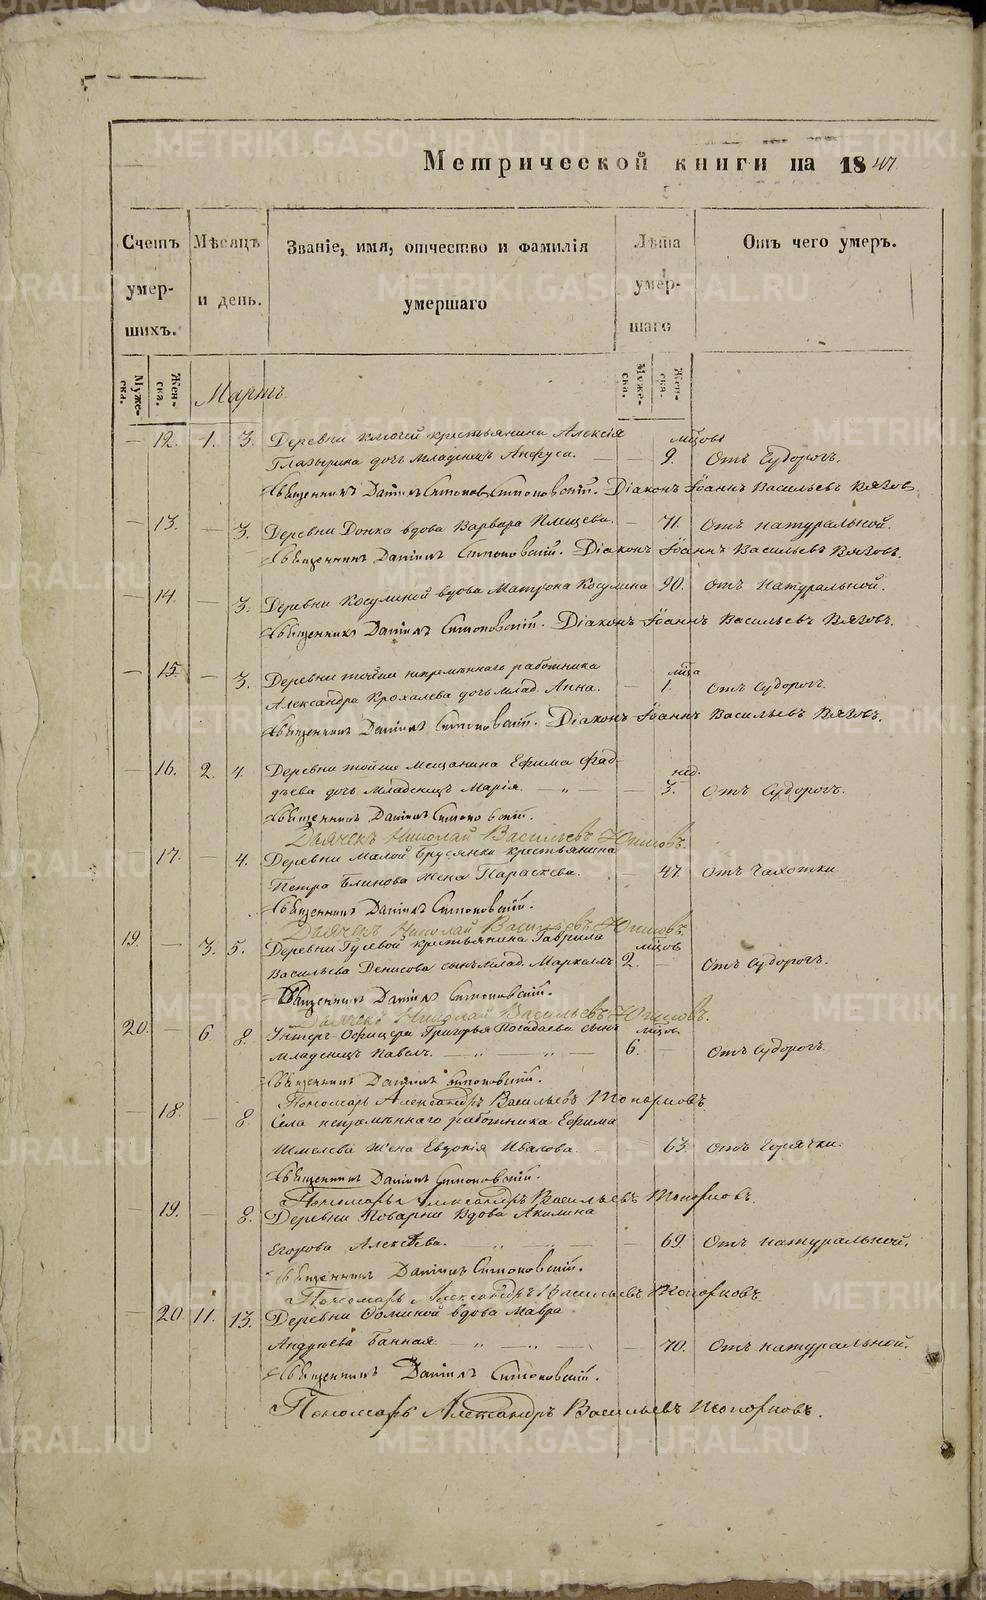 Метрической книги на 1847.
Счетъ умершихъ.
Мѣсяцъ и день.
Званіе, имя, отчество и фамилія умершаго
Лѣта умершаго
Отъ чего умеръ.
Мужеска. Женска. Мартъ. Мужеска. Женска.
— 12. 1. 3. Деревни Ключей крестьянина Алексія мѣсовъ
Глазырина дочь младенецъ Анфуса. — — 9. Отъ Судорогъ.
Священникъ Даніилъ Діаконъ Іоаннъ Васильевъ Вязовъ
— 13. — 3. Деревни вдова Варвара — 71. Отъ натуральной.
Священникъ Даніилъ Діаконъ Іоаннъ Васильевъ Вязовъ.
— 14. — 3. Деревни Косулиной вдова Матрона Косулина 90. Отъ Натуральной.
Священникъ Даніилъ Діаконъ Іоаннъ Васильевъ Вязовъ.
— 15. — 3. Деревни тойже непремѣннаго работника мѣсца
Александра Крохалева дочь млад. Анна. — 1. Отъ Судорогъ.
Священникъ Даніилъ Діаконъ Іоаннъ Васильевъ Вязовъ.
— 16. 2. 4. Деревни тойже Мещанина Ефима Фад- нед.
дѣева дочь младенецъ Марія. — „ — — 3. Отъ Судорогъ.
Священникъ Даніилъ
Дьячекъ Николай Васильевъ
17. — 4. Деревни Малой Брусянки крестьянина
Петра Блинова жена Параскева. — 47. Отъ Чахотки
Священникъ Даніилъ
Дьячекъ Николай Васильевъ
19. — 3. 5. Деревни Гусевой крестьянина Гаврила мѣсцов
Васильева Денисова сынъ млад. Маркеллъ 2. — Отъ Судорогъ.
Священникъ Даніилъ
Дьячекъ Николай Васильевъ
20. — 6 8. Унтеръ-Офицера Григорья сынъ мѣсцов.
Младенецъ Павелъ. — „ — „ — 6. — Отъ Судорогъ.
Священникъ Даніилъ
Пономарь Александръ Васильевъ Топорковъ
— 18. — 8. Села непремѣннаго работника Ефима
Шмелева жена Евдокія Ивалова. — 63. Отъ Горячки.
Священникъ Даніилъ
Пономарь Александръ Васильевъ Топорковъ.
— 19. — 8. Деревни Поварни Вдова Акилина
Егорова Алексѣева. „ — „ — — 69. Отъ натуральной.
Священникъ Даніилъ
Пономарь Александръ Васильевъ Топорковъ
— 20. 11. 13. Деревни Фоминой вдова Мавра
Андреева Банная — „ — „ — — 70. Отъ натуральной.
Священникъ Даніилъ
Пономарь Александръ Васильевъ Топорковъ.
METRIKI.GASO-URAL.RU